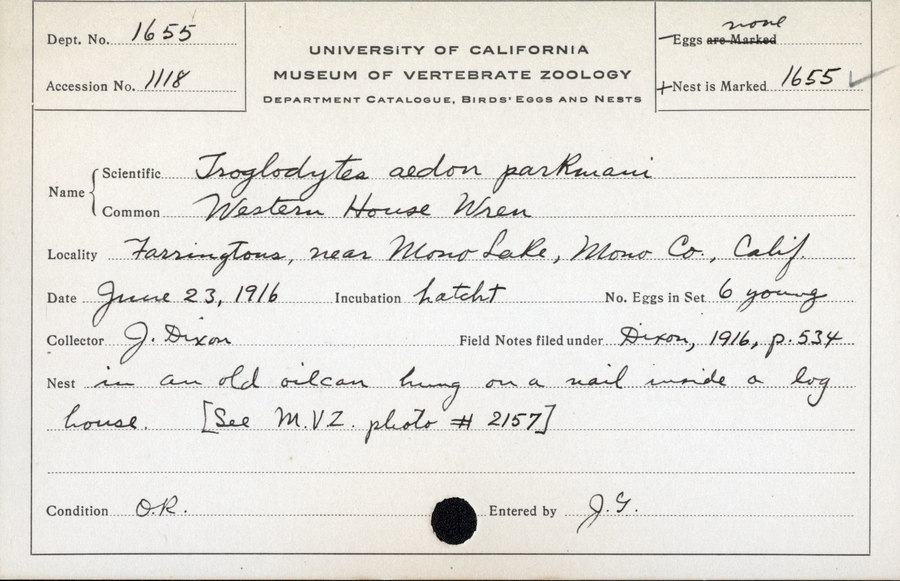 Dept. No. 1655
Accession No. 1118
UNIVERSITY OF CALIFORNIA
MUSEUM OF VERTEBRATE ZOOLOGY
DEPARTMENT CATALOGUE, BIRDS' EGGS AND NESTS
none
Eggs are Marked
Nest is Marked 1655 ✓
Name
Scientific Troglodytes aedon parkmani
Common Western House Wren
Locality Farringtons, near Mono Lake, Mono Co., Calif.
Date June 23, 1916 Incubation hatcht No. Eggs in Set 6 young
Collector J. Dixon Field Notes filed under Dixon, 1916, p. 534
Nest in an old oilcan hung on a nail inside a log
house. [See M.V.Z. photo # 2157]
Condition O.K. Entered by J.G.